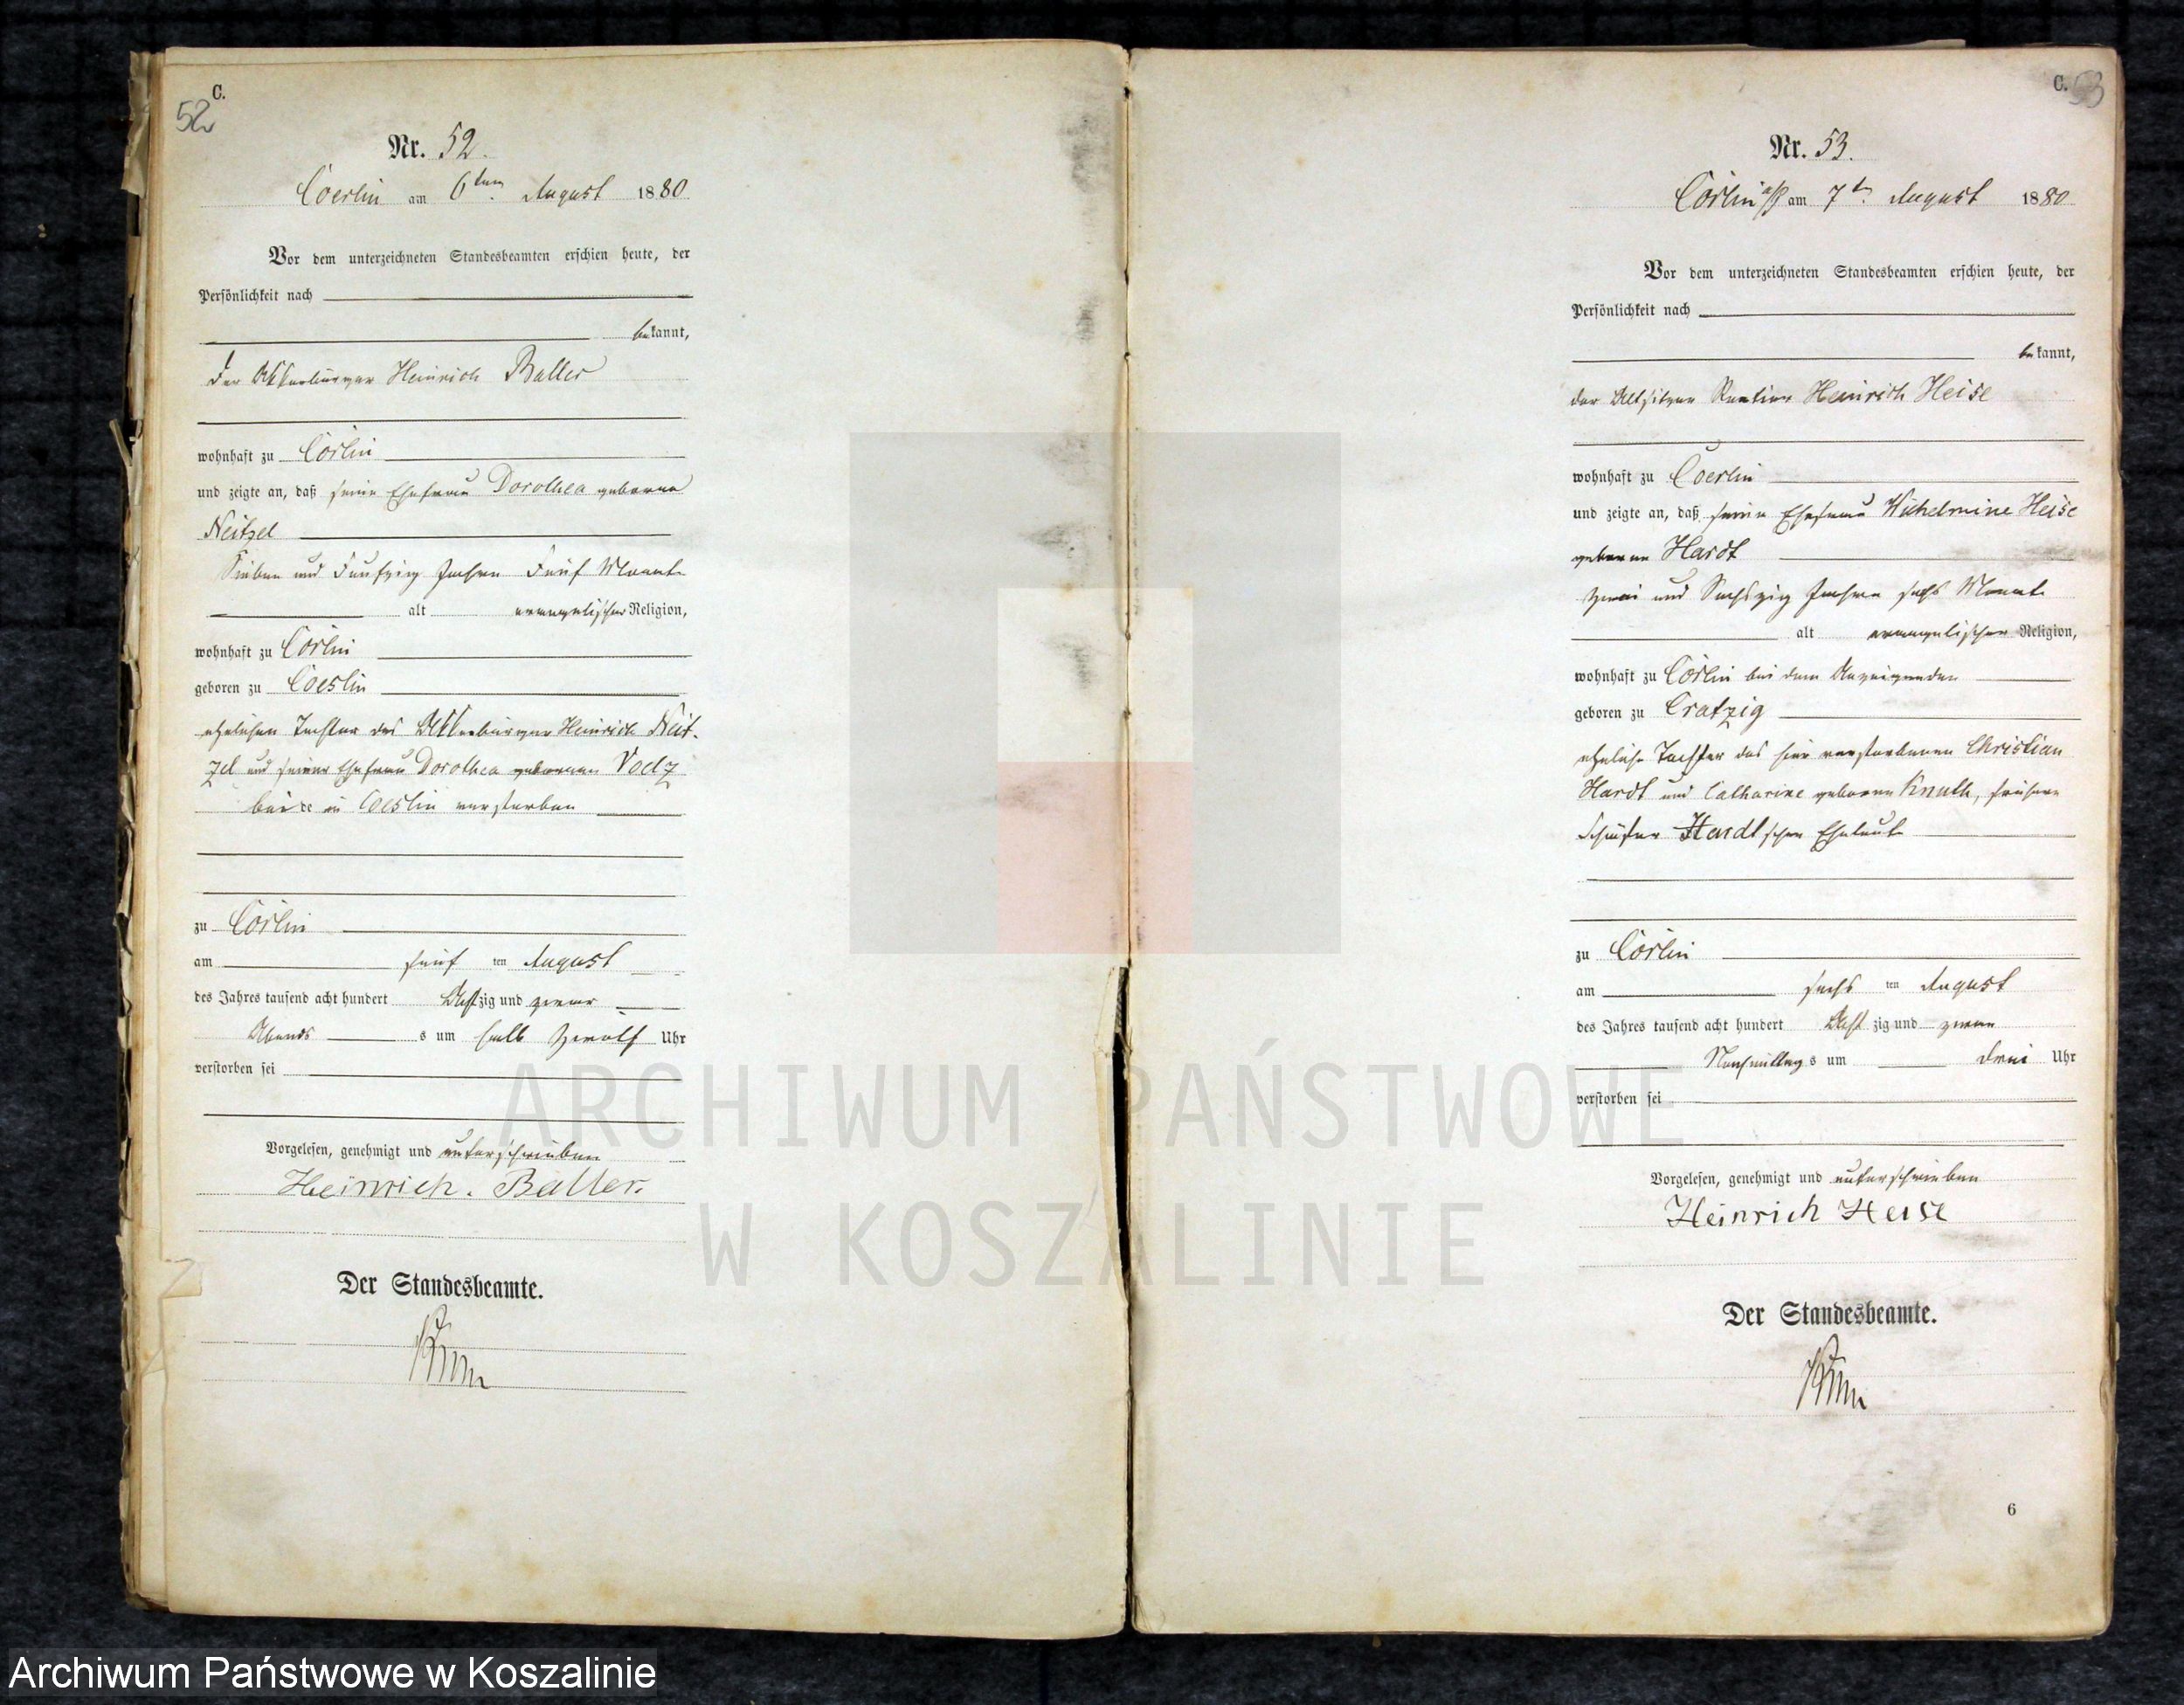 C.
52
Nr. 52.
Coerlin am 6ten August 1880
Vor dem unterzeichneten Standesbeamten erschien heute, der
Persönlichkeit nach
bekannt,
der Ackerbürger Heinrich Baller
wohnhaft zu Cörlin
und zeigte an, daß seine Ehefrau Dorothea geborne
Neitzel
Sieben und Fünfzig Jahre Fünf Monate
alt evangelischer Religion,
wohnhaft zu Cörlin
geboren zu Coeslin
eheliche Tochter des Ackerbürger Heinrich Neit-
zel und seiner Ehefrau Dorothea gebornen
beide in Coeslin verstorben
zu Cörlin
am fünf ten August
des Jahres tausend acht hundert Acht zig und zwar
Abends s um halb Zwölf Uhr
verstorben sei
Vorgelesen, genehmigt und unterschrieben
Heinrich. Baller.
Der Standesbeamte.
C.
53
Nr. 53.
Cörlin a/P am 7ten August 1880
Vor dem unterzeichneten Standesbeamten erschien heute, der
Persönlichkeit nach
bekannt,
der Altsitzer Rentier Heinrich Heise
wohnhaft zu Coerlin
und zeigte an, daß seine Ehefrau Wilhelmine Heise
geborne Hardt
zwei und Sechszig Jahre sechs Monate
alt evangelischer Religion,
wohnhaft zu Cörlin bei dem Anzeigenden
geboren zu Cratzig
eheliche Tochter des hier verstorbenen Christian
Hardt und Catharine geborne Knuth, frühere
Schäfer Hardt'schen Eheleute
zu Cörlin
am sechs ten August
des Jahres tausend acht hundert Acht zig und zwar
Nachmittag s um drei Uhr
verstorben sei
Vorgelesen, genehmigt und unterschrieben
Heinrich Heise
Der Standesbeamte.
6
ARCHIWUM PAŃSTWOWE
W KOSZALINIE
Archiwum Państwowe w Koszalinie